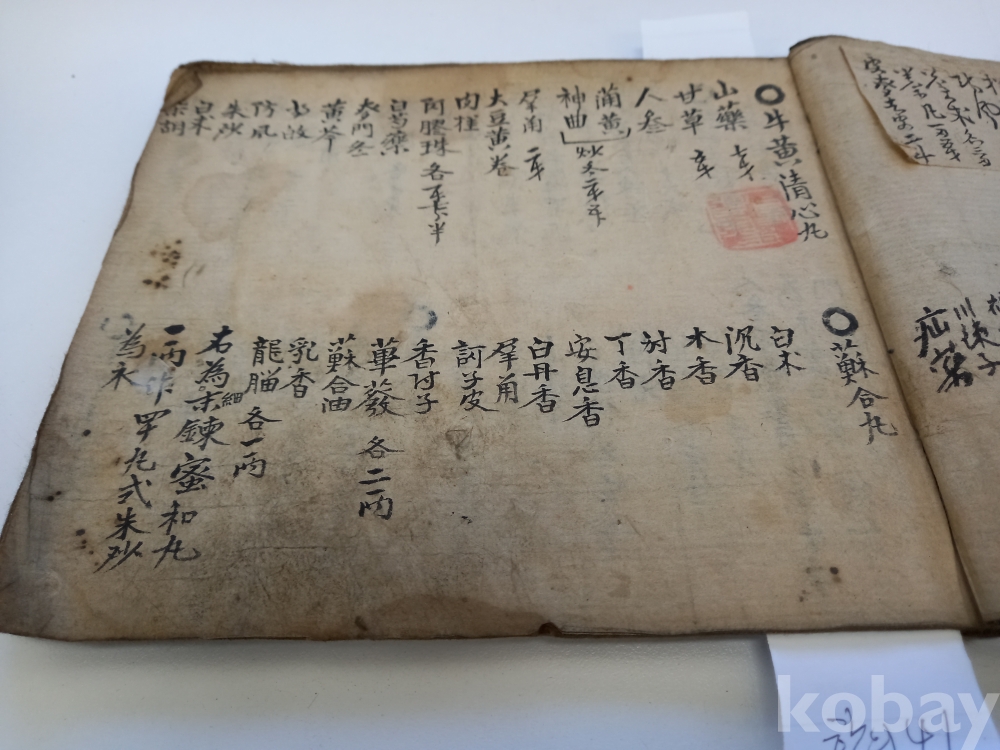 牛黄清心丸
山藥 七戔
甘草 五戔
人参
蒲黄
神曲 炒各二戔半
犀角 二戔
大豆黄卷
肉桂
阿膠珠 各一戔七分半
白芍藥
麥門冬
黄芩
當歸
防風
朱砂
白朮
柴胡
蘇合丸
白朮
沉香
木香
射香
丁香
安息香
白丹香
犀角
訶子皮
香付子
蓽蕟 各二兩
蘇合油
乳香
龍腦 各一兩
右為細末鍊蜜和丸
一兩作四十丸式朱砂
為衣
川楝子
疝著
kobay